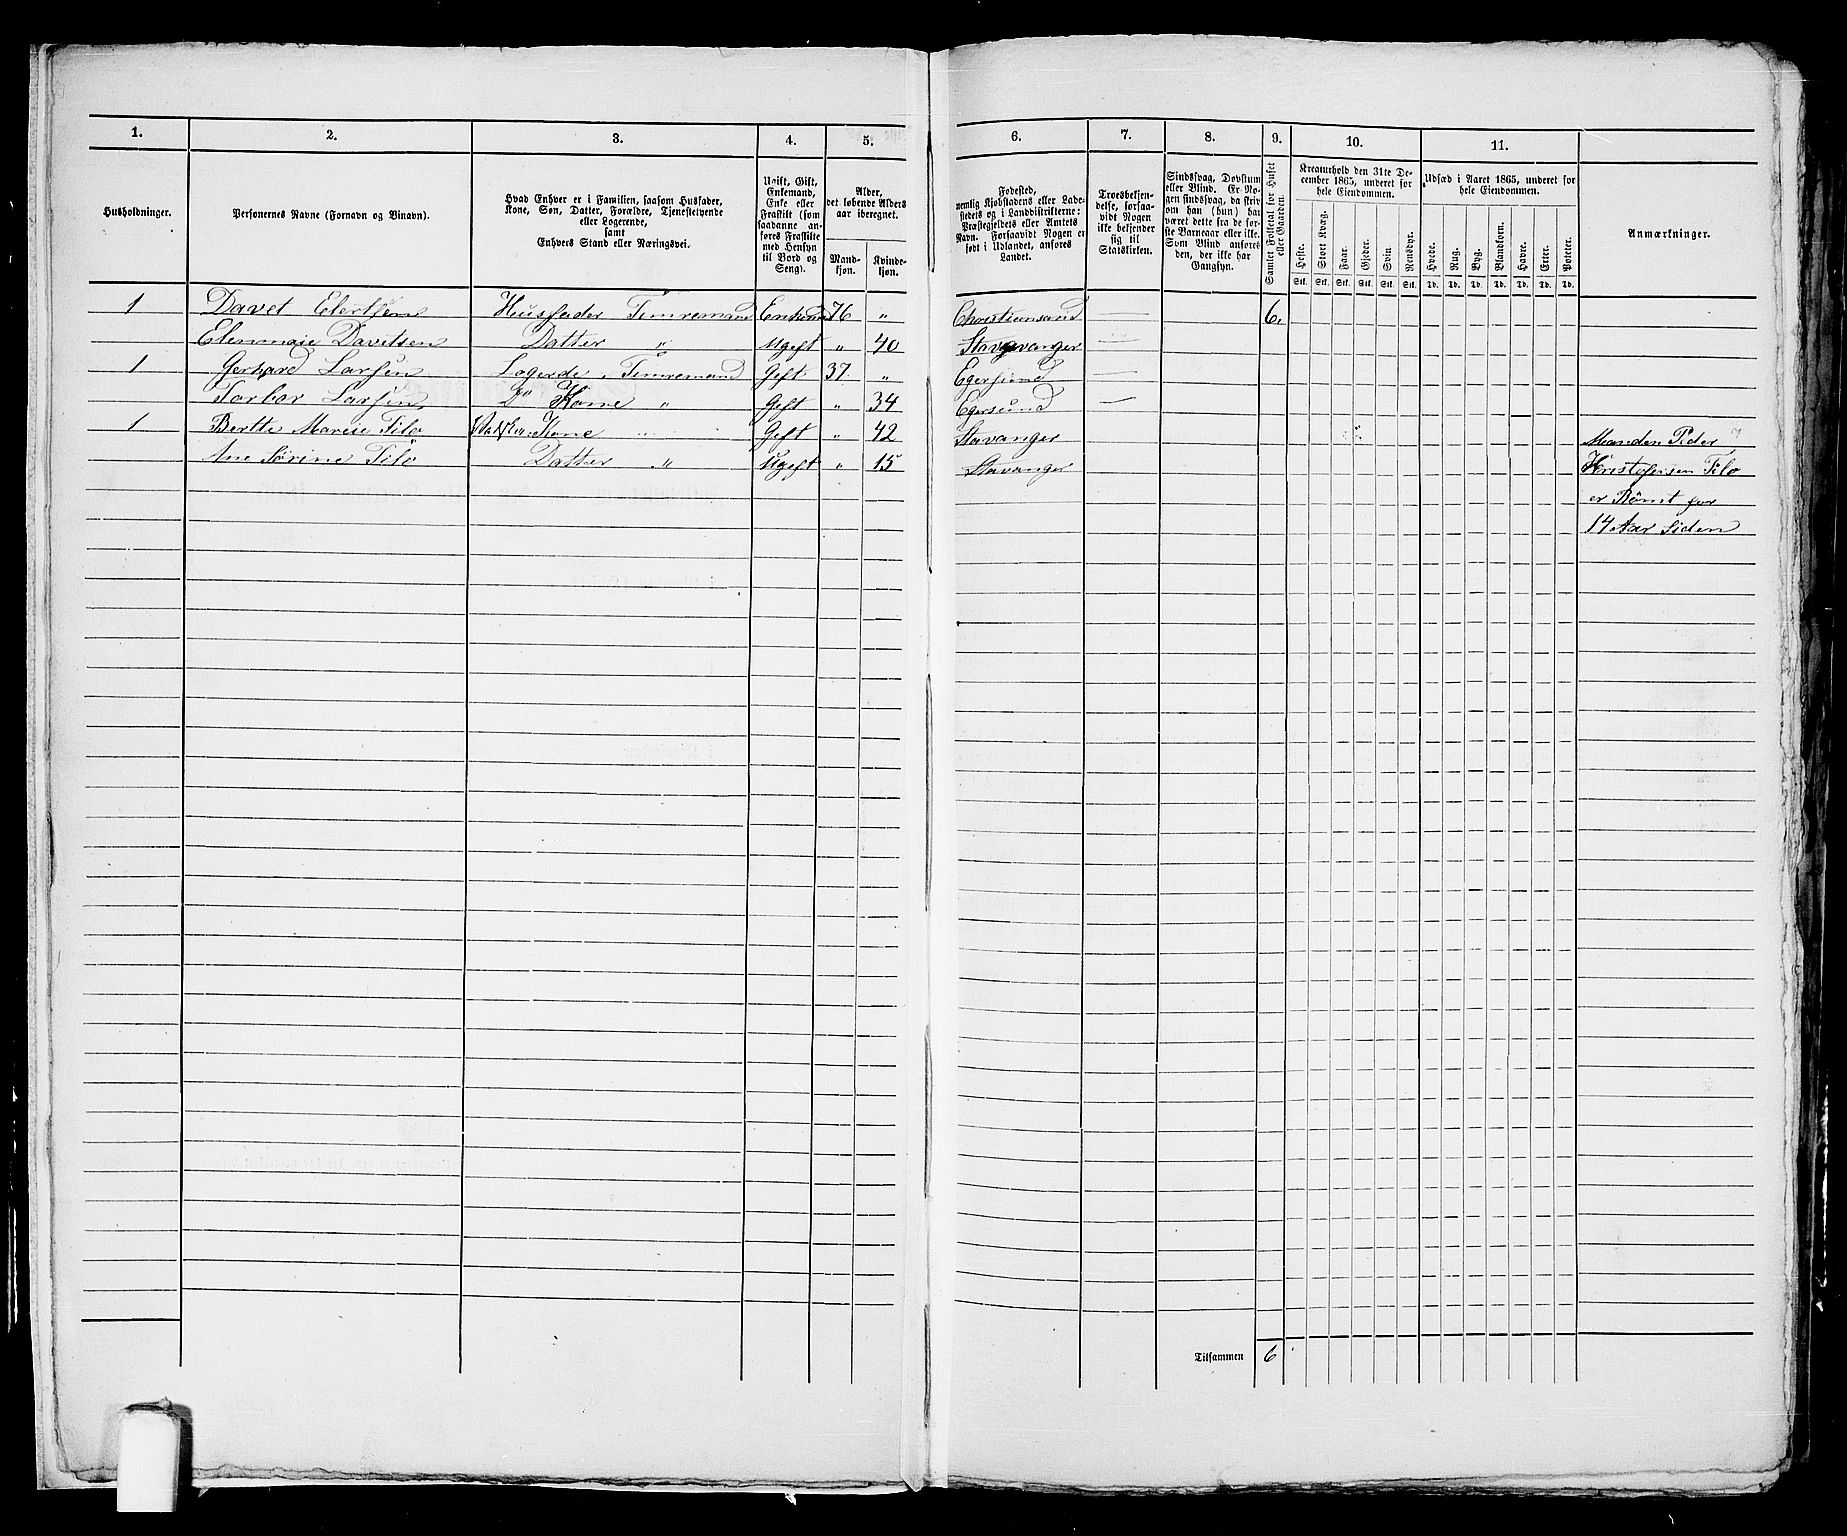 1. 2. 3. 4. 5. 6. 7. 8. 9. 10. 11.
Husholdninger.
Personernes Navne (Fornavn og Vinavn).
Hvad Enhver er i Familien, saasom Husfader,
Kone, Søn, Datter, Forældre, Tjenestetyende
eller Logerende,
samt
Enhvers Stand eller Næringsvei.
Ugift, Gift,
Enkemand,
Enke eller
Fraskilt (som
saadanne an-
føres Fraskilte
med Hensyn
til Bord og
Seng).
Alder,
det løbende Alders-
aar iberegnet.
Mand-
kjøn.
Kvinde-
kjøn.
Fødested,
nemlig Kjøbstadens eller Lade-
stedets og i Landdistrikterne:
Præstegjeldets eller Amtets
Navn. Forsaavidt Nogen er
født i Udlandet, anføres
Landet.
Troesbekjen-
delse, forsaa-
vidt Nogen
ikke bekjender
sig til
Statskirken.
Sindssvag, Døvstum
eller Blind. Er No-
gen sindssvag, da skriv
om han (hun) har
været dette fra de før-
ste Barneaar eller ikke.
Som Blind anføres
den, der ikke har
Gangsyn.
Samlet Folketal for Huset
eller Gaarden.
Kreaturhold den 31te De-
cember 1865, underet for
hele Eiendommen.
Heste. Stort Kvæg. Faar. Gjeder. Svin Rensdyr.
Stk. Stk. Stk. Stk. Stk. Stk.
Udsæd i Aaret 1865, underet for
hele Eiendommen.
Hvede. Rug. Byg. Blandkorn. Havre. Erter. Poteter.
Td. Td. Td. Td. Td. Td. Td.
Anmærkninger.
1 Davet Elertsen Husfader Timremand Enkem 76 „ Christiansand — 6.
Elenmaie Davitsen Datter „ Ugift „ 40 Stavanger
1 Gerhard Larsen Logerde Timremand Gift 37 „ Egersund —
Torbor Larsen Do Kone „ Gift „ 34 Egersund —
1 Bertte Mareie Tilo Kone „ Gift „ 42 Stavanger Manden Peder
Ane Sørine Tilo Datter „ Ugift „ 15 Stavanger Kristofersen Tilo
er Rømt for
14 Aar siden
Tilsammen 6